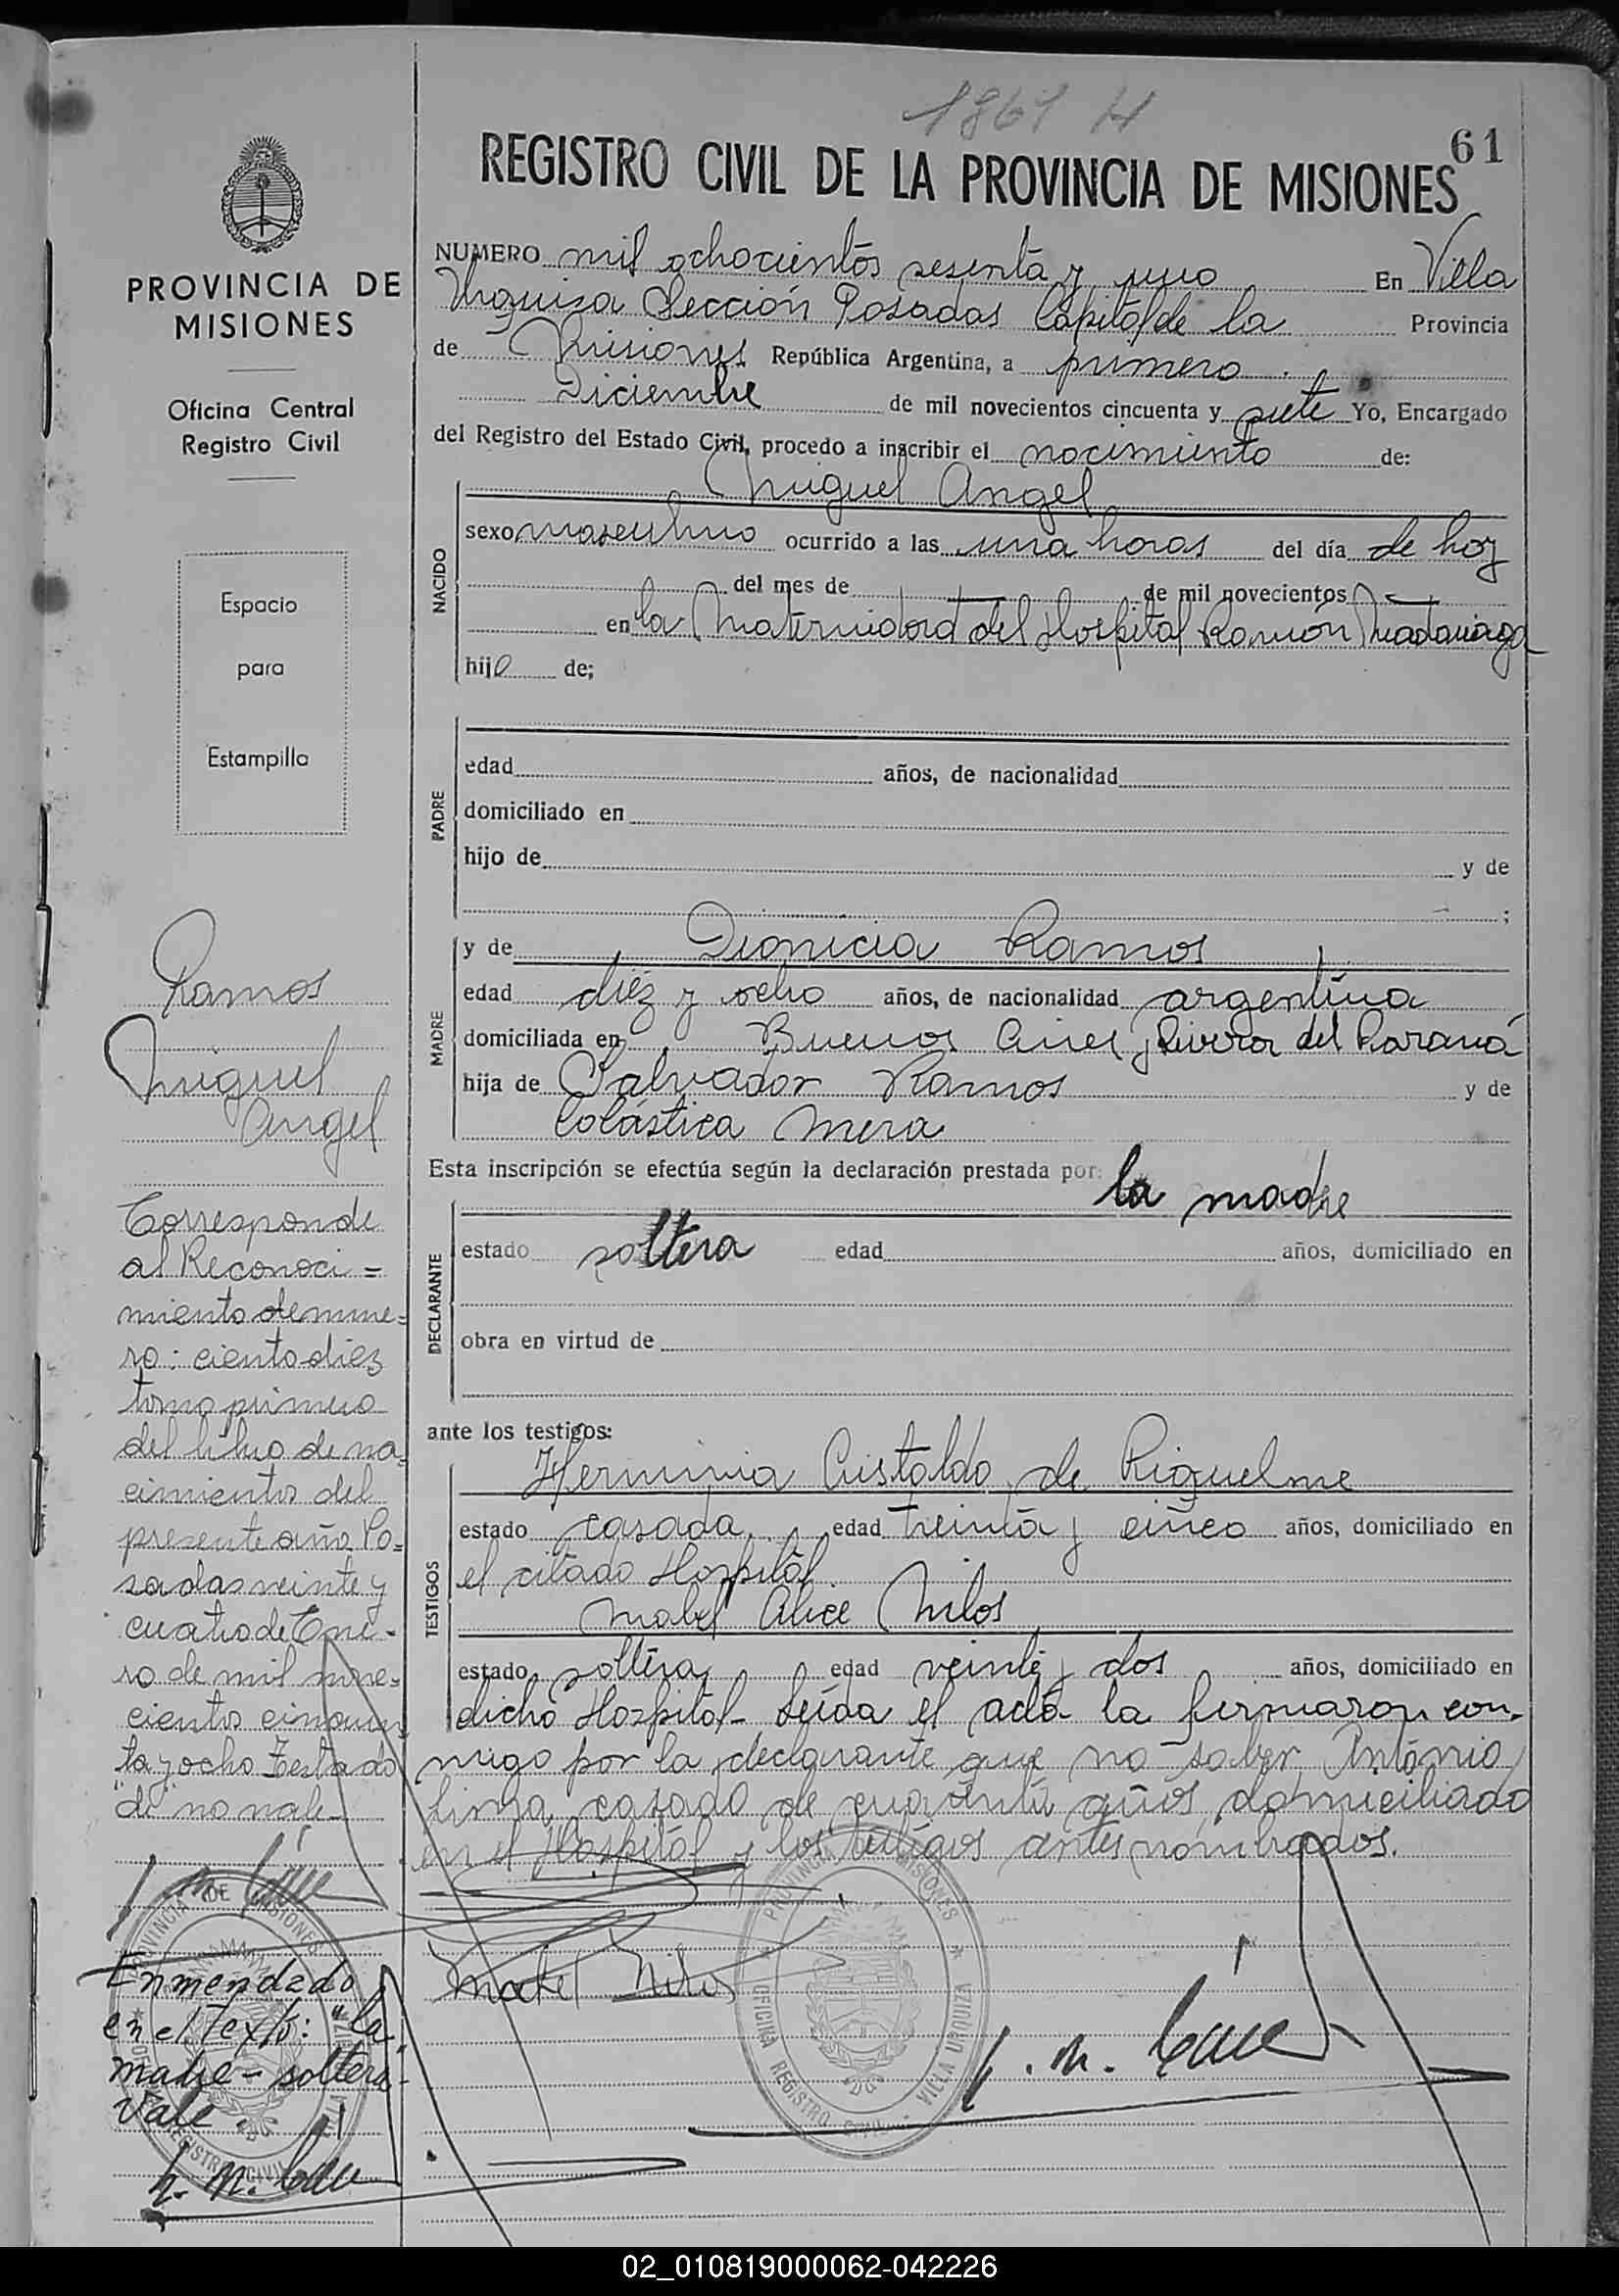 1861 H
61
REGISTRO CIVIL DE LA PROVINCIA DE MISIONES
NUMERO mil ochocientos sesenta y uno En Villa
Urquiza Sección Posadas Capital de la Provincia
de Misiones República Argentina, a primero
Diciembre de mil novecientos cincuenta y siete Yo, Encargado
del Registro del Estado Civil, procedo a inscribir el nacimiento de:
NACIDO
Miguel Angel
sexo masculino ocurrido a las una horas del día de hoy
del mes de de mil novecientos
en la Maternidad del Hospital Ramón Madariaga
hijo de;
PADRE
edad años, de nacionalidad
domiciliado en
hijo de y de
;
MADRE
y de Dionicia Ramos
edad diéz y ocho años, de nacionalidad argentina
domiciliada en Buenos Aires, Rivera del Paraná
hija de Salvador Ramos y de
Colástica Mera
Esta inscripción se efectúa según la declaración prestada por:
DECLARANTE
la madre
estado soltera edad años, domiciliado en
obra en virtud de
ante los testigos:
TESTIGOS
Herminia Cristaldo de Riquelme
estado casada edad treinta y cinco años, domiciliado en
el citado Hospital.
Mabel Alice Milos
estado soltera edad veinte y dos años, domiciliado en
dicho Hospital- Leída el acta la firmaron con-
migo por la declarante que no saber Antonio
Lima casado de cuarenta años, domiciliado
en el Hospital y los testigos antes nombrados.
Mabel Milos
PROVINCIA DE MISIONES
OFICINA REGISTRO CIVIL - VILLA URQUIZA
PROVINCIA DE
MISIONES
Oficina Central
Registro Civil
Espacio
para
Estampilla
Ramos
Miguel
Angel
Corresponde
al Reconoci=
miento de nume=
ro: ciento diez
tomo primero
del libro de na=
cimientos del
presente año. Po=
sadas veinte y
cuatro de Ene-
ro de mil nove=
cientos cincuen
ta y ocho Testado
"de" no vale-
PROVINCIA DE MISIONES
REGISTRO CIVIL
Enmendado
en el Texto: "la
madre - soltera"-
Vale.
02_010819000062-042226